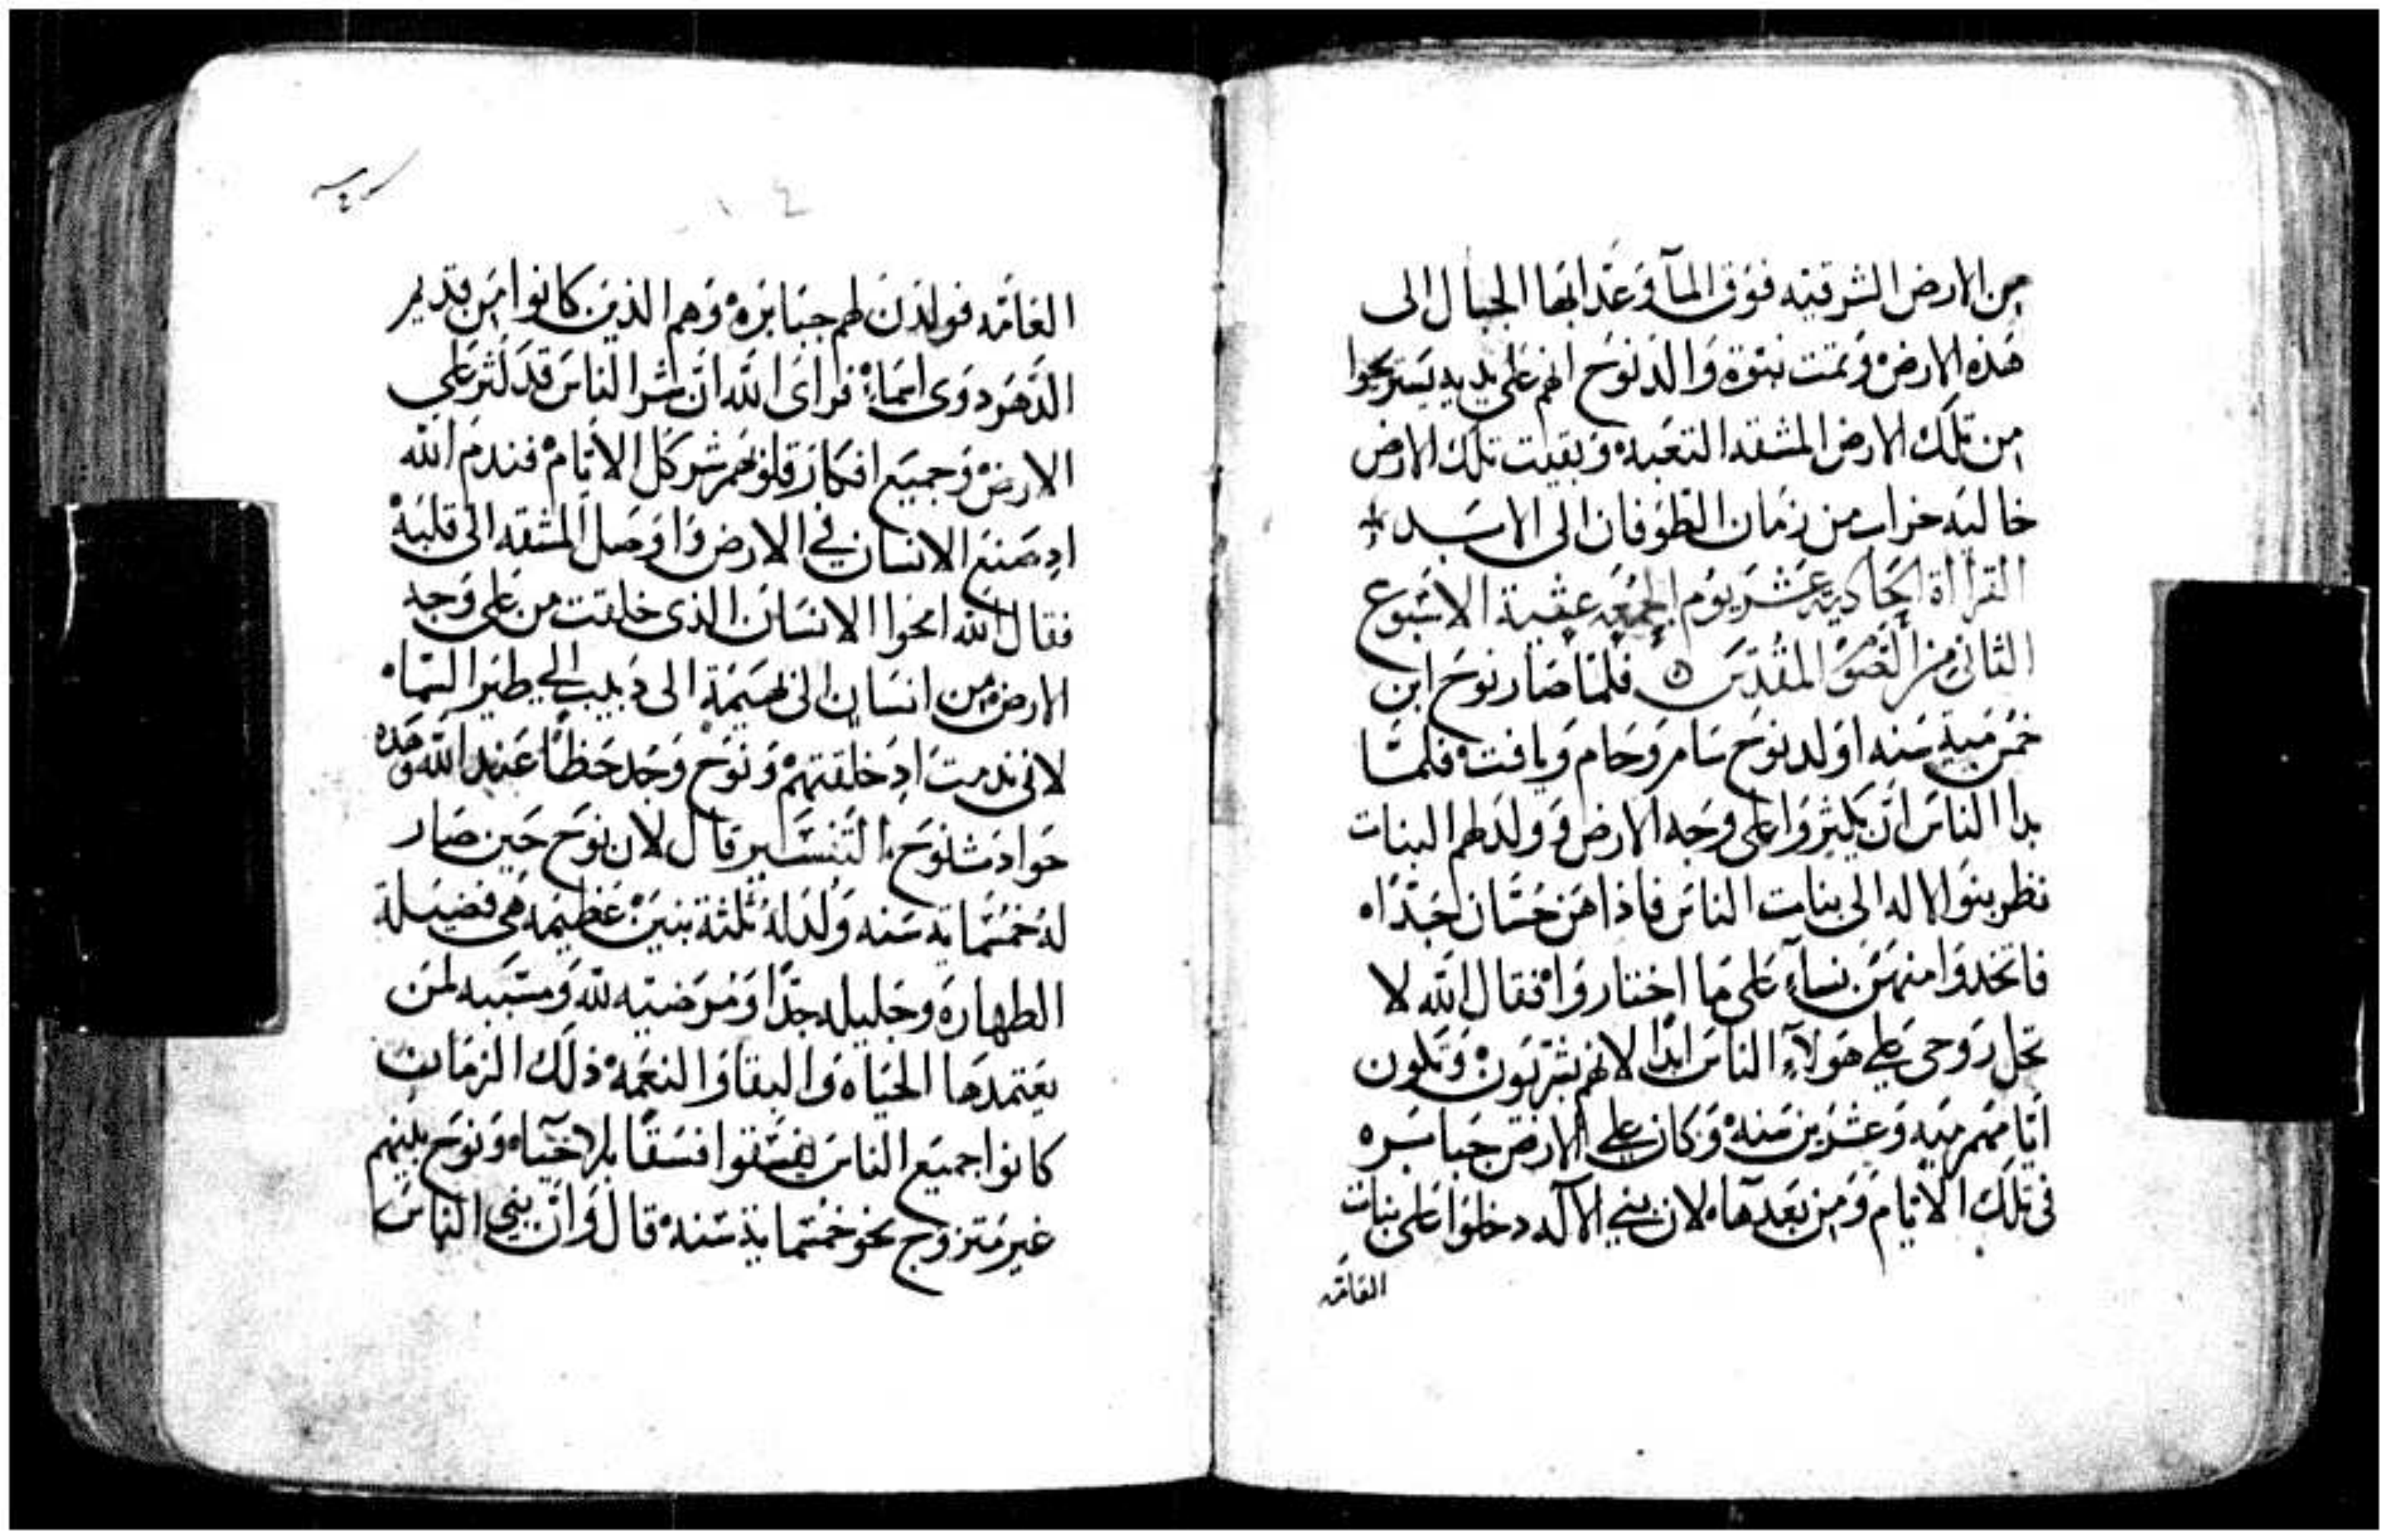 من الارض الشرقيه فوق المآ وعدابها الجبال الى
هذه الارض وتمت نبوة والد نوح انهم على يديه يستريحوا
من تلك الارض المشقه التعبه وبقيت تلك الارض
خاليه خراب من زمان الطوفان الى الابد
القراأة الحادية عشر يوم الجمعه عشية الاسبوع
الثاني من الصوم المقدس فلما صار نوح ابن
خمس مية سنه اولد نوح سام وحام ويافت فلما
بدا الناس ان يكثروا على وجه الارض وولد لهم البنات
نظر بنوا الاله الى بنات الناس فاذا هن حسان جدا
فاتخدوا منهن نساء على ما اختاروا فقال الله لا
تحل روحي على هولآء الناس ابدا لانهم بشريون وتكون
ايامهم مية وعشرين سنه وكان على الارض جبابره
في تلك الايام ومن بعدها لان بني الآله دخلوا على بنات
العامه
العامه فولدن لهم جبابره وهم الذين كانوا من قديم
الدهر دوى اسماء فراى الله ان شر الناس قد كثر على
الارض وجميع افكار قلوبهم شر كل الايام فندم الله
اد صنع الانسان في الارض واوصل المشقه الى قلبه
فقال الله امحوا الانسان الذي خلقت من على وجه
الارض من انسان الى بهيمة الى دبيب الى طير السماء
لاني ندمت اد خلقتهم ونوح وجد حظا عند الله وهده
حوادث نوح التفسير قال لان نوح حين صار
له خمسماية سنه ولد له ثلثة بنين عظيمه هي فضيلة
الطهاره وجليله جدا ومرضيه لله ومسببه لمن
يعتمدها الحياه والبقا والنعمه ذلك الزمان
كانوا جميع الناس يفسقوا فسقا بلا حياه ونوح بينهم
غير متزوج نحو خمسماية سنه قال وان بني الناس